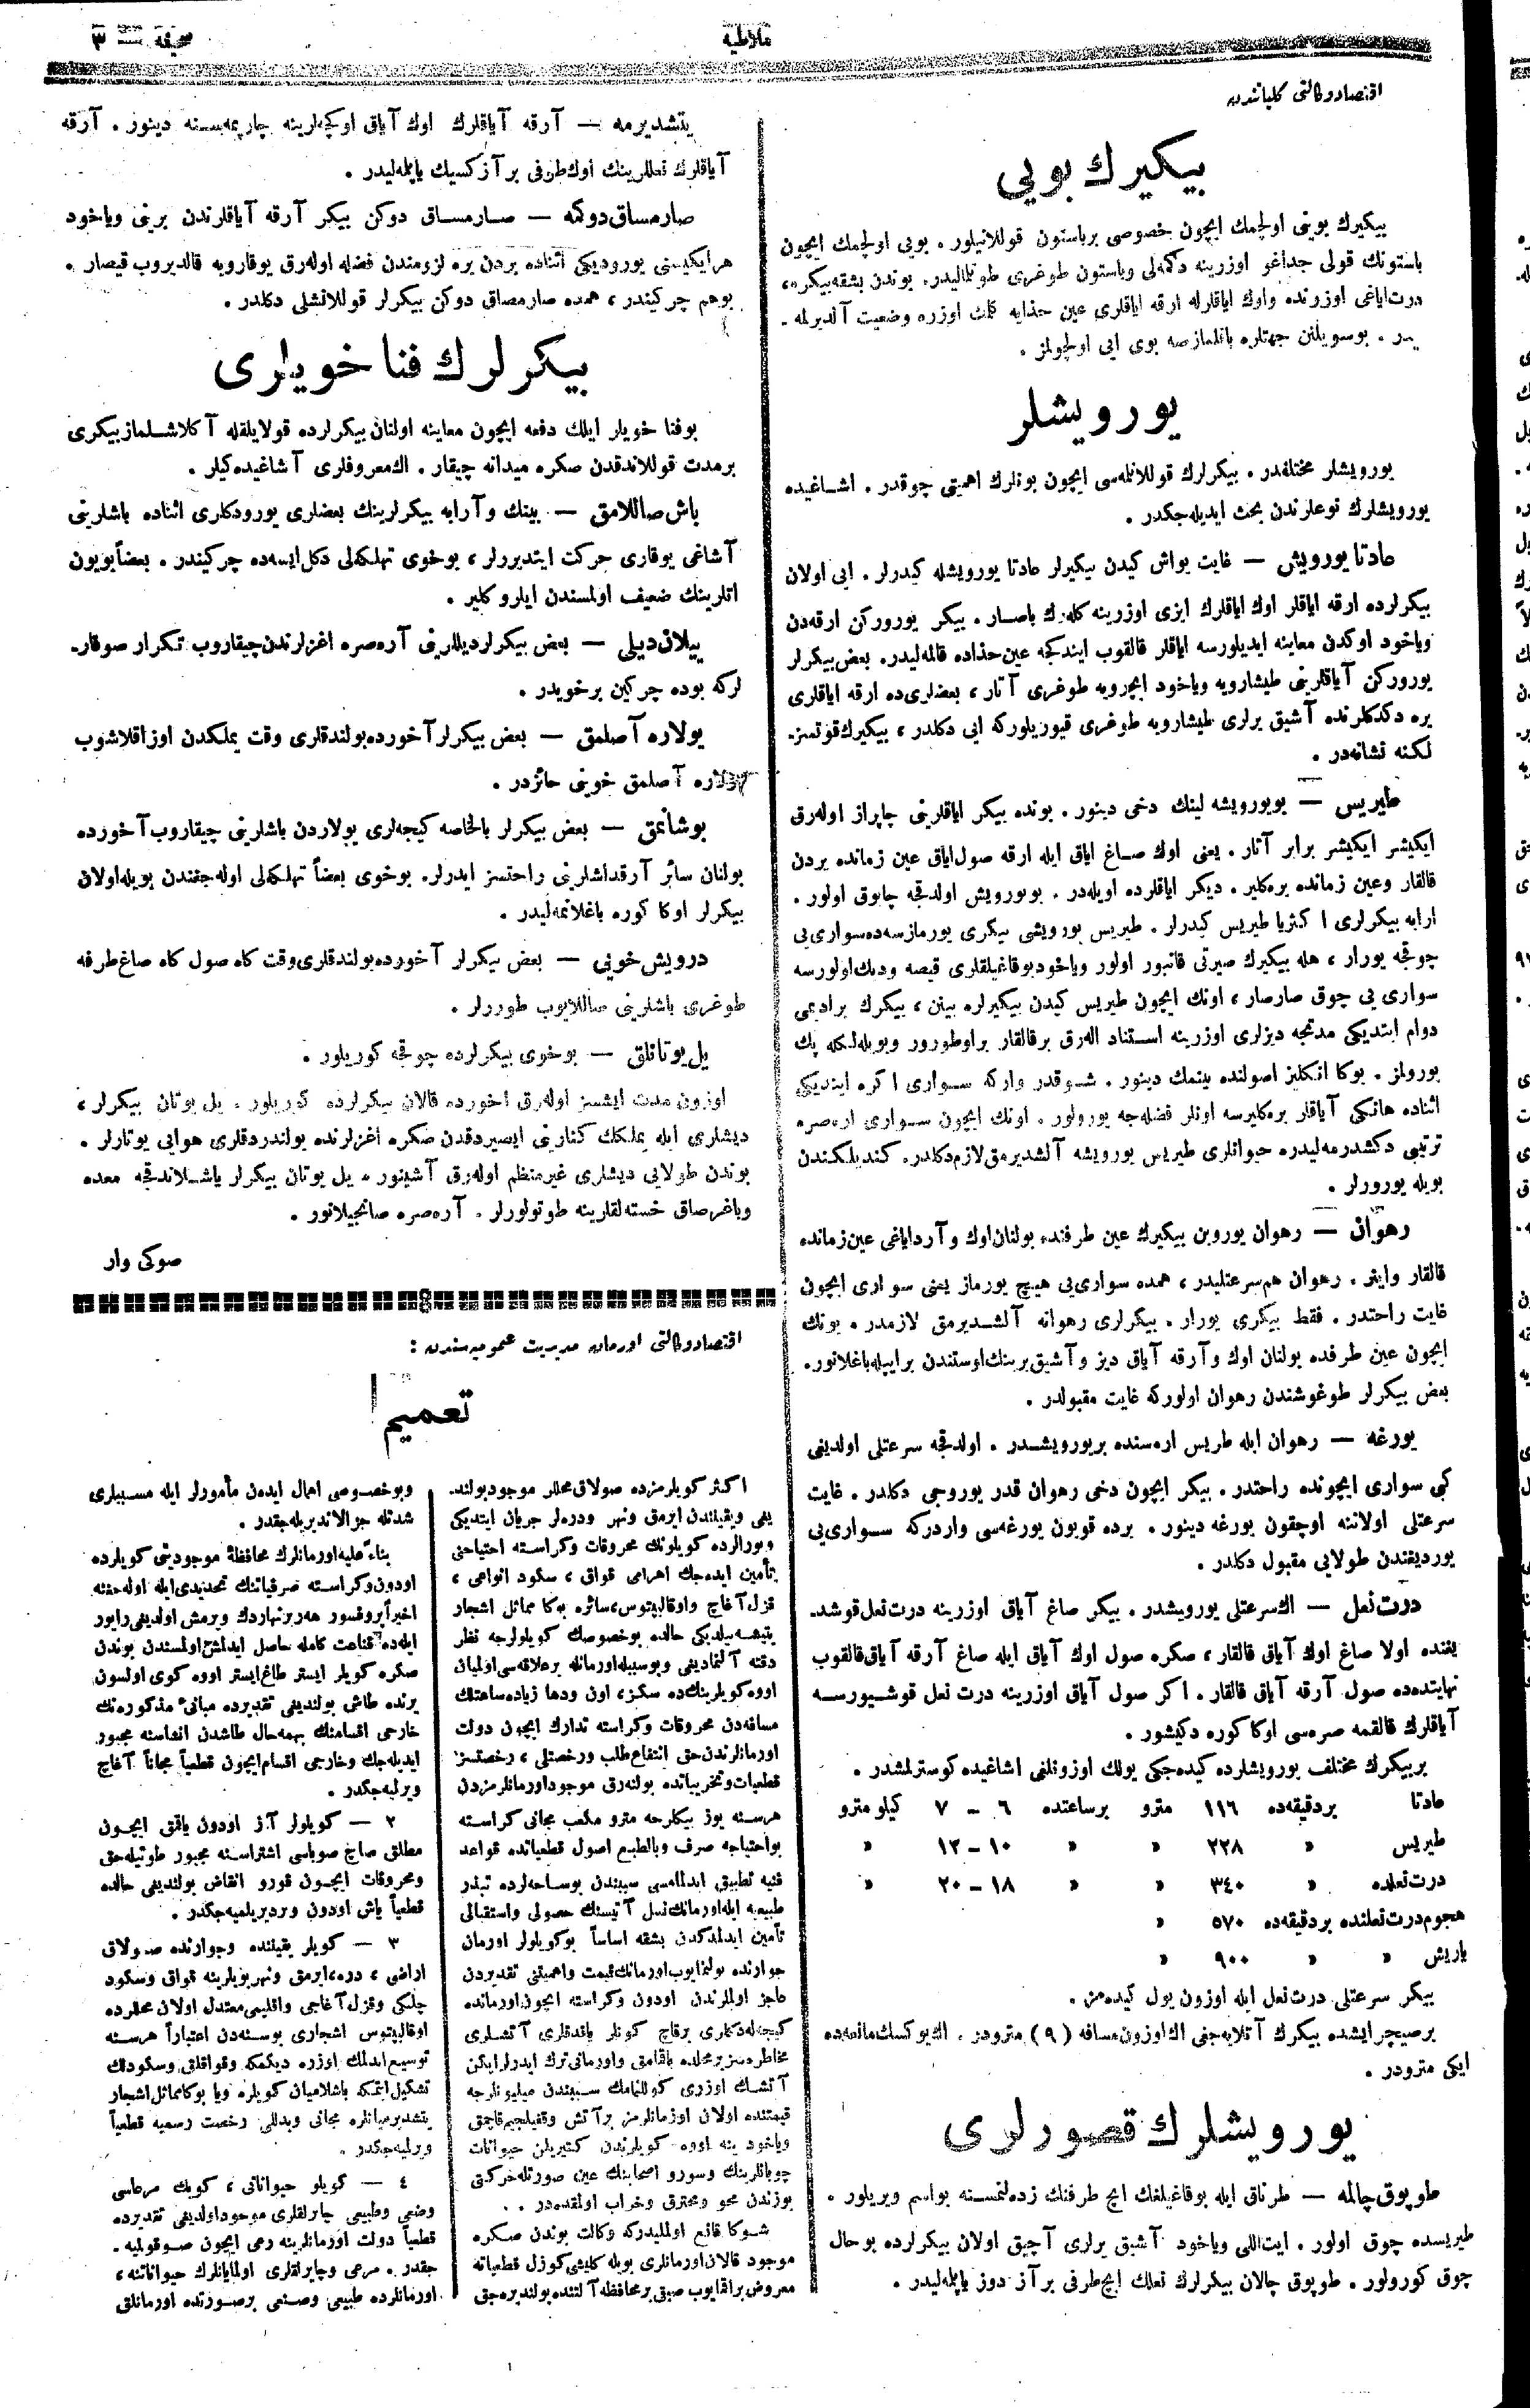 ملاطيه
صحيفه — ٣
اقتصاد وكالتى كلياتندن
بيكيرك بويى
بيكيرك بوينى اولچمك ايچون خصوصى برباستون قوللانيلور . بويى اولچمك ايچون
باستونك قولى جداغو اوزرينه دكمه‌لى وباستون طوغرى طوتلماليدر. بوندن بشقه بيكر ،
درت اياغى اوزرنده واوك اياقلرله ارقه اياقلرى عين حذايه كلمك اوزره وضعيت آلديرلمه ـ
ـيدر . بوسويلنن جهتلره باقلمازسه بوى ايى اولچولمز .
يورويشلر
يورويشلر مختلفدر . بيكرلرك قوللانلمه‌سى ايچون بونلرك اهميتى چوقدر . اشاغيده
يورويشلرك نوعلرندن بحث ايديله‌جكدر .
عادتا يورويش — غايت يواش كيدن بيكيرلر عادتا يورويشله كيدرلر . ايى اولان
بيكرلرده ارقه اياقلر اوك اياقلرك ايزى اوزرينه كله‌رك باصار . بيكر يوروركن ارقه‌دن
وياخود اوكدن معاينه ايديلورسه اياقلر قالقوب ايندكجه عين حذاده قالمه‌ليدر. بعض بيكرلر
يوروركن آياقلرينى طيشارويه وياخود ايچرويه طوغرى آتار ، بعضلرى ده ارقه اياقلرى
يره دكدكلرنده آشيق يرلرى طيشارويه طوغرى قيوريلوركه ايى دكلدر ، بيكيرك قوتسز ـ
لكنه نشانه‌در .
طيريس — بويورويشه لينك دخى دينور . بونده بيكر اياقلرينى چاپراز اوله‌رق
ايكيشر ايكيشر برابر آتار . يعنى اوك صاغ اياق ايله ارقه صول اياق عين زمانده يردن
قالقار وعين زمانده يره كلير . ديكر اياقلرده اويله‌در . بويورويش اولدقجه چابوق اولور .
ارابه بيكرلرى اكثريا طيريس كيدرلر . طيريس يورويشى بيكرى يورمازسه‌ده سوارى يى
چوقجه يورار ، هله بيكيرك صيرتى قانبور اولور وياخود بوقاغيلقلرى قيصه وديك اولورسه
سوارى يى چوق صارصار ، اونك ايچون طيريس كيدن بيكيرلره بينن ، بيكرك برآديمى
دوام ايتديكى مدتجه ديزلرى اوزرينه استناد اله‌رق برقالقار براوطورور وبويله‌لكله پك
يورولمز . بوكا انكليز اصولنده بينمك دينور . شوقدر واركه سوارى اكره اينديكى
اثناده هانكى آياقلر يره كليرسه اونلر فضله‌جه يورولور . اونك ايچون سوارى اره‌صره
ترتيبى دكشدرمه‌ليدر. حيوانلرى طيريس يورويشه آلشديرمق لازم دكلدر. كنديلكندن
بويله يورورلر .
رهوان — رهوان يورو‌ين بيكيرك عين طرفنده بولنان اوك وآرد اياغى عين زمانده
قالقار واينر . رهوان هم سرعتليدر ، همده سوارى يى هيچ يورماز يعنى سوارى ايچون
غايت راحتدر . فقط بيكرى يورار . بيكرلرى رهوانه آلشديرمق لازمدر . بونك
ايچون عين طرفده بولنان اوك وآرقه آياق ديز وآشيق يرينك اوستندن برايپله باغلانور.
بعض بيكرلر طوغوشندن رهوان اولوركه غايت مقبولدر .
يورغه — رهوان ايله طريس اره‌سنده بريورويشدر . اولدقجه سرعتلى اولديغى
كبى سوارى ايچونده راحتدر . بيكر ايچون دخى رهوان قدر يوروجى دكلدر . غايت
سرعتلى اولاننه اوچقون يورغه دينور . برده قويون يورغه‌سى واردركه سوارى يى
يورديغندن طولايى مقبول دكلدر .
درت نعل — اك سرعتلى يورويشدر . بيكر صاغ آياق اوزرينه درت نعل قوشد ـ
يغنده اولا صاغ اوك آياق قالقار ، صكره صول اوك آياق ايله صاغ آرقه آياق قالقوب
نهايتده‌ده صول آرقه آياق قالقار . اكر صول آياق اوزرينه درت نعل قوشيورسه
آياقلرك قالقمه صره‌سى اوكا كوره دكيشور .
بربيكرك مختلف يورويشلرده كيده‌جكى يولك اوزونلغى اشاغيده كوسترلمشدر .
عادتا بردقيقه‌ده ١١٦ مترو برساعتده ٦ – ٧ كيلو مترو
طيريس » ٢٢٨ » » ١٠ – ١٢ »
درت نعلده » ٣٤٠ » » ١٨ – ٢٠ »
هجوم درت نعلنده بردقيقه‌ده ٥٧٠ »
ياريش » » ٩٠٠ »
بيكر سرعتلى درت نعل ايله اوزون يول كيده‌مز .
برصيچرايشده بيكرك آتلايه‌جغى اك اوزون مسافه ( ٩ ) مترودر . اك يوكسك مانعه‌ده
ايكى مترودر .
يورويشلرك قصورلرى
طوپوق چالمه — طرناق ايله بوقاغيلغك ايچ طرفنك زده‌لنمسنه بواسم ويريلور .
طيريسده چوق اولور . ايت اللى وياخود آشيق يرلرى آچيق اولان بيكرلرده بوحال
چوق كورولور . طوپوق چالان بيكرلرك نعلك ايچ طرفى برآز دوز ياپلمه‌ليدر .
يتشديرمه — آرقه آياقلرك اوك آياق اوكچه‌لرينه چارپمه‌سنه دينور . آرقه
آياقلرك نعللرينك اوك طرفى برآز كسيك ياپلمه‌ليدر .
صارمساق دوكمه — صارمساق دوكن بيكر آرقه آياقلرندن برينى وياخود
هرايكيسنى يوروديكى اثناده يردن يره لزومندن فضله اوله‌رق يوقارويه قالديروب قيصار .
بوهم چركيندر ، همده صارمصاق دوكن بيكرلر قوللانشلى دكلدر .
بيكرلرك فنا خويلرى
بوفنا خويلر ايلك دفعه ايچون معاينه اولنان بيكرلرده قولايلقله آكلاشلماز بيكرى
برمدت قوللاندقدن صكره ميدانه چيقار . اك معروفلرى آشاغيده‌كيلر .
باش صاللامق — بينك وآرابه بيكرلرينك بعضلرى يورودكلرى اثناده باشلرينى
آشاغى يوقارى حركت ايتديررلر ، بوخوى تهلكه‌لى دكل ايسه‌ده چركيندر . بعضاً بويون
اتلرينك ضعيف اولمسندن ايلرو كلير .
ييلان ديلى — بعض بيكرلر ديللرينى آره‌صره اغزلرندن چيقاروب تكرار صوقار ـ
لركه بوده چركين برخويدر .
يولاره آصلمق — بعض بيكرلر آخورده بولندقلرى وقت يملكدن اوزاقلاشوب
يولاره آصلمق خوينى حائزدر .
بوشانمق — بعض بيكرلر بالخاصه كيجه‌لرى يولاردن باشلرينى چيقاروب آخورده
بولنان سائر آرقداشلرينى راحتسز ايدرلر. بوخوى بعضاً تهلكه‌لى اوله‌جغندن بويله اولان
بيكرلر اوكا كوره باغلانمه‌ليدر .
درويش خويى — بعض بيكرلر آخورده بولندقلرى وقت كاه صول كاه صاغ طرفه
طوغرى باشلرينى صاللايوب طوررلر .
يل يوتانلق — بوخوى بيكرلرده چوقجه كوريلور .
اوزون مدت ايشسز اوله‌رق اخورده قالان بيكرلرده كوريلور . يل يوتان بيكرلر ،
ديشلرى ايله يملكك كنارينى ايصيردقدن صكره اغزلرنده بولندردقلرى هوايى يوتارلر .
بوندن طولايى ديشلرى غيرمنتظم اوله‌رق آشينور . يل يوتان بيكرلر ياشلاندقجه معده
وباغرصاق خسته‌لقلرينه طوتولورلر . آره‌صره صانجيلانور .
صوكى وار
اقتصاد وكالتى اورمان مديريت عموميه‌سندن :
تعميم
اكثر كويلرمزده صولاق محللر موجود بولند ـ
يغى ويقينندن ايرمق ونهر ودره‌لر جريان ايتديكى
وبورالرده كويلونك محروقات وكراسته احتياجنى
تأمين ايده‌جك اهرامى قواق ، سكود انواعى ،
قزل آغاچ واوقاليپتوس وسائره بوكا مماثل اشجار
يتيشه‌بيلديكى حالده بوخصوصك كويلولرجه نظر
دقته آلنماديغى وبوسببله اورمانله برعلاقه‌سى اولميان
اووه كويلرينك‌ده سكز ، اون ودها زياده ساعتلك
مسافه‌دن محروقات وكراسته تدارك ايچون دولت
اورمانلرندن حق انتفاع طلب ورخصتلى ، رخصتسز
قطعيات وتخريباتده بولنه‌رق موجود اورمانلرمزدن
هرسنه يوز بيكلرجه مترو مكعب مجانى كراسته
بواحتياجه صرف وبالطبع اصول قطعياتده قواعد
فنيه تطبيق ايدلمامسى سببندن بوساحه‌لرده تبذر
طبيعيه ايله اورمانك نسل آتيسنك حصولى واستقبالى
تأمين ايدلمدكدن بشقه اساساً بوكويلولر اورمان
جوارنده بولنمايوب اورمانك قيمت واهميتنى تقديردن
عاجز اولملرندن اودون وكراسته ايچون اورمانده
كيجه‌له‌دكلرى برقاچ كونلر ياقدقلرى آتشلرى
مخاطره‌سز برمحلده ياقمامق واورمانى ترك ايدرلرايكن
آتشك اوزرى كوللنمامك سببندن ميليونلرجه
قيمتنده اولان اورمانلرمز برآتش وقغيلجيم قاچمق
وياخود ينه اووه كويلرندن كتيريلن حيوانات
چوبانلرينك وسورو اصحابنك عين صورتله حركتى
يوزندن محو ومحترق وخراب اولمقده‌در . .
شوكا قانع اولمليدركه وكالت بوندن صكره
موجود قالان اورمانلرى بويله كليشى كوزل قطعياته
معروض براقمايوب صيقى برمحافظه آلتنده بولنديره‌جق
وبوخصوصى اهمال ايدن مأمورلر ايله مسببلرى
شدتله جزالانديريله‌جقدر .
بناءً عليه اورمانلرك محافظهٔ موجوديتى كويلرده
اودون وكراسته صرفياتنك تحديدى ايله اوله‌جغنه
اخيراً پروفسور هه‌ر برنهاردك ويرمش اولديغى راپور
ايله‌ده قناعت كامله حاصل ايدلمش اولمسندن بوندن
صكره كويلر ايستر طاغ ايستر اووه كوى اولسون
يرنده طاش بولنديغى تقديرده مبانىٔ مذكوره‌نك
خارجى اقسامنك بهمه‌حال طاشدن انشاسنه مجبور
ايديله‌جك وخارجى اقسام ايچون قطعياً مجاناً آغاچ
ويرلميه‌جكدر .
٢ — كويلولر آز اودون ياقمق ايچون
مطلق صاچ صوباسى اشتراسنه مجبور طوتيله‌جق
ومحروقات ايچون قورو انقاض بولنديغى حالده
قطعياً ياش اودون ويرديريلميه‌جكدر .
٣ — كويلر يقيننده وجوارنده صولاق
اراضى ، دره ، ايرمق ونهر بويلرينه قواق وسكود
چلكى وقزل آغاجى واقليمى معتدل اولان محللرده
اوقاليپتوس اشجارى بوسنه‌دن اعتباراً هرسنه
توسيع ايدلمك اوزره ديكمكه وقواقلق وسكودلك
تشكيل ايتمكه باشلاميان كويلره ويا بوكا مماثل اشجار
يتشديرميانلره مجانى وبدللى رخصت رسميه قطعياً
ويرلميه‌جكدر .
٤ — كويلو حيواناتى ، كويك مرعاسى
وضعى وطبيعى چايرلقلرى موجود اولديغى تقديرده
قطعياً دولت اورمانلرينه رعى ايچون صوقولميه ـ
جقدر . مرعى وچايرلقلرى اولمايانلرك حيواناتنه ،
اورمانلرده طبيعى وصنعى برصورتده اورمانلق